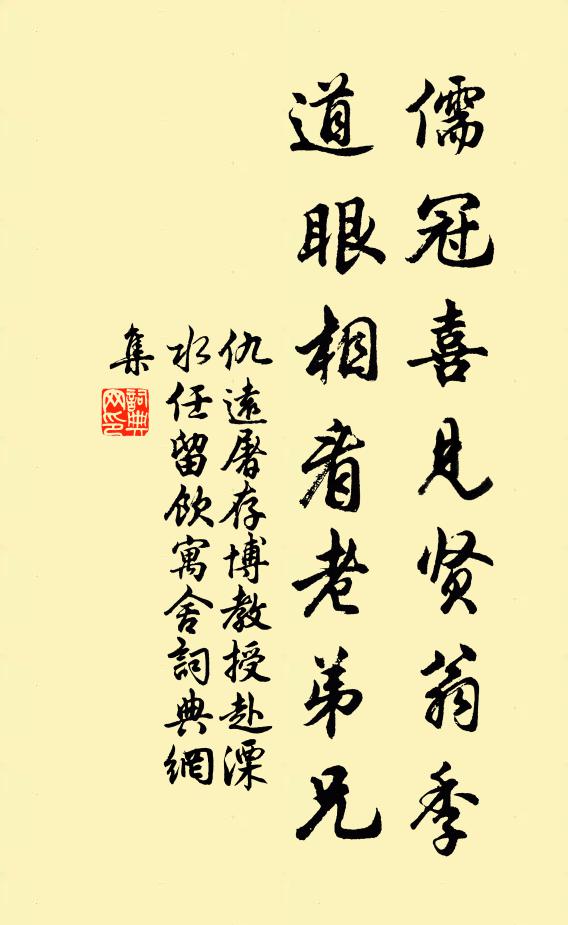 儒冠喜见贤翁季
道眼相看老弟兄
仇远屠存博教授赴溧
水任留饮寓舍词典網
集
詞典
网印